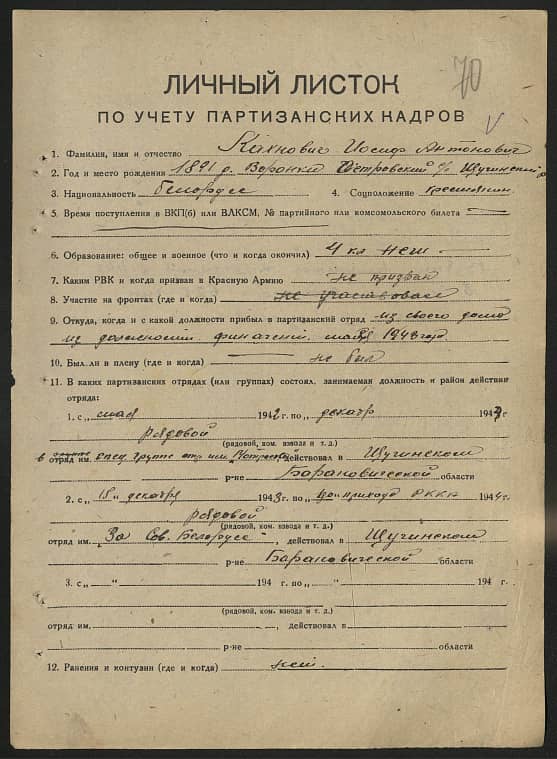 70
ЛИЧНЫЙ ЛИСТОК
ПО УЧЕТУ ПАРТИЗАНСКИХ КАДРОВ
1. Фамилия, имя и отчество Кахнович Иосиф Антонович
2. Год и место рождения 1891 г. Воронки Островский с/с Щучинский р
3. Национальность белорусс 4. Соцположение крестьянин
5. Время поступления в ВКП(б) или ВЛКСМ, № партийного или комсомольского билета
6. Образование: общее и военное (что и когда окончил) 4 кл нет
7. Каким РВК и когда призван в Красную Армию не призван
8. Участие на фронтах (где и когда) не участвовал
9. Откуда, когда и с какой должности прибыл в партизанский отряд из своего дома
из должности 1943 года
10. Был ли в плену (где и когда) не был
11. В каких партизанских отрядах (или группах) состоял, занимаемая должность и район действия
отряда:
1. с „ мая 1942 г. по „ декабр 1943 г
рядовой
(рядовой, ком. взвода и т. д.)
отряд им. спец группе отр им. действовал в Щучинском
р-не Барановической области
2. с „15„ декабря 1943 г. по „ прихода РККА 1944 г.
рядовой
(рядовой, ком. взвода и т. д.)
отряд им. За Сов. Белорусс , действовал в Щучинском
р-не Барановической области
3. с „ “ 194 г. по „ “ 194 г.
(рядовой, ком. взвода и т. д.)
отряд им. , действовал в
р-не области
12. Ранения и контузии (где и когда) нет.